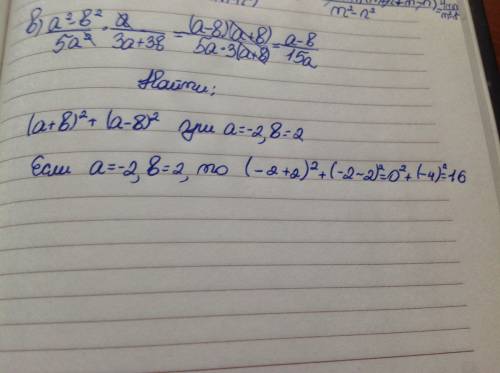 m²-n²
в) a²-в²/5a² · a/3a+3в = (a-в)(a+в)/5a·3(a+в) = a-в/15a
Найти:
(a+в)²+(a-в)² при a=-2, в=2
Если a=-2, в=2, то (-2+2)²+(-2-2)²=0²+(-4)²=16